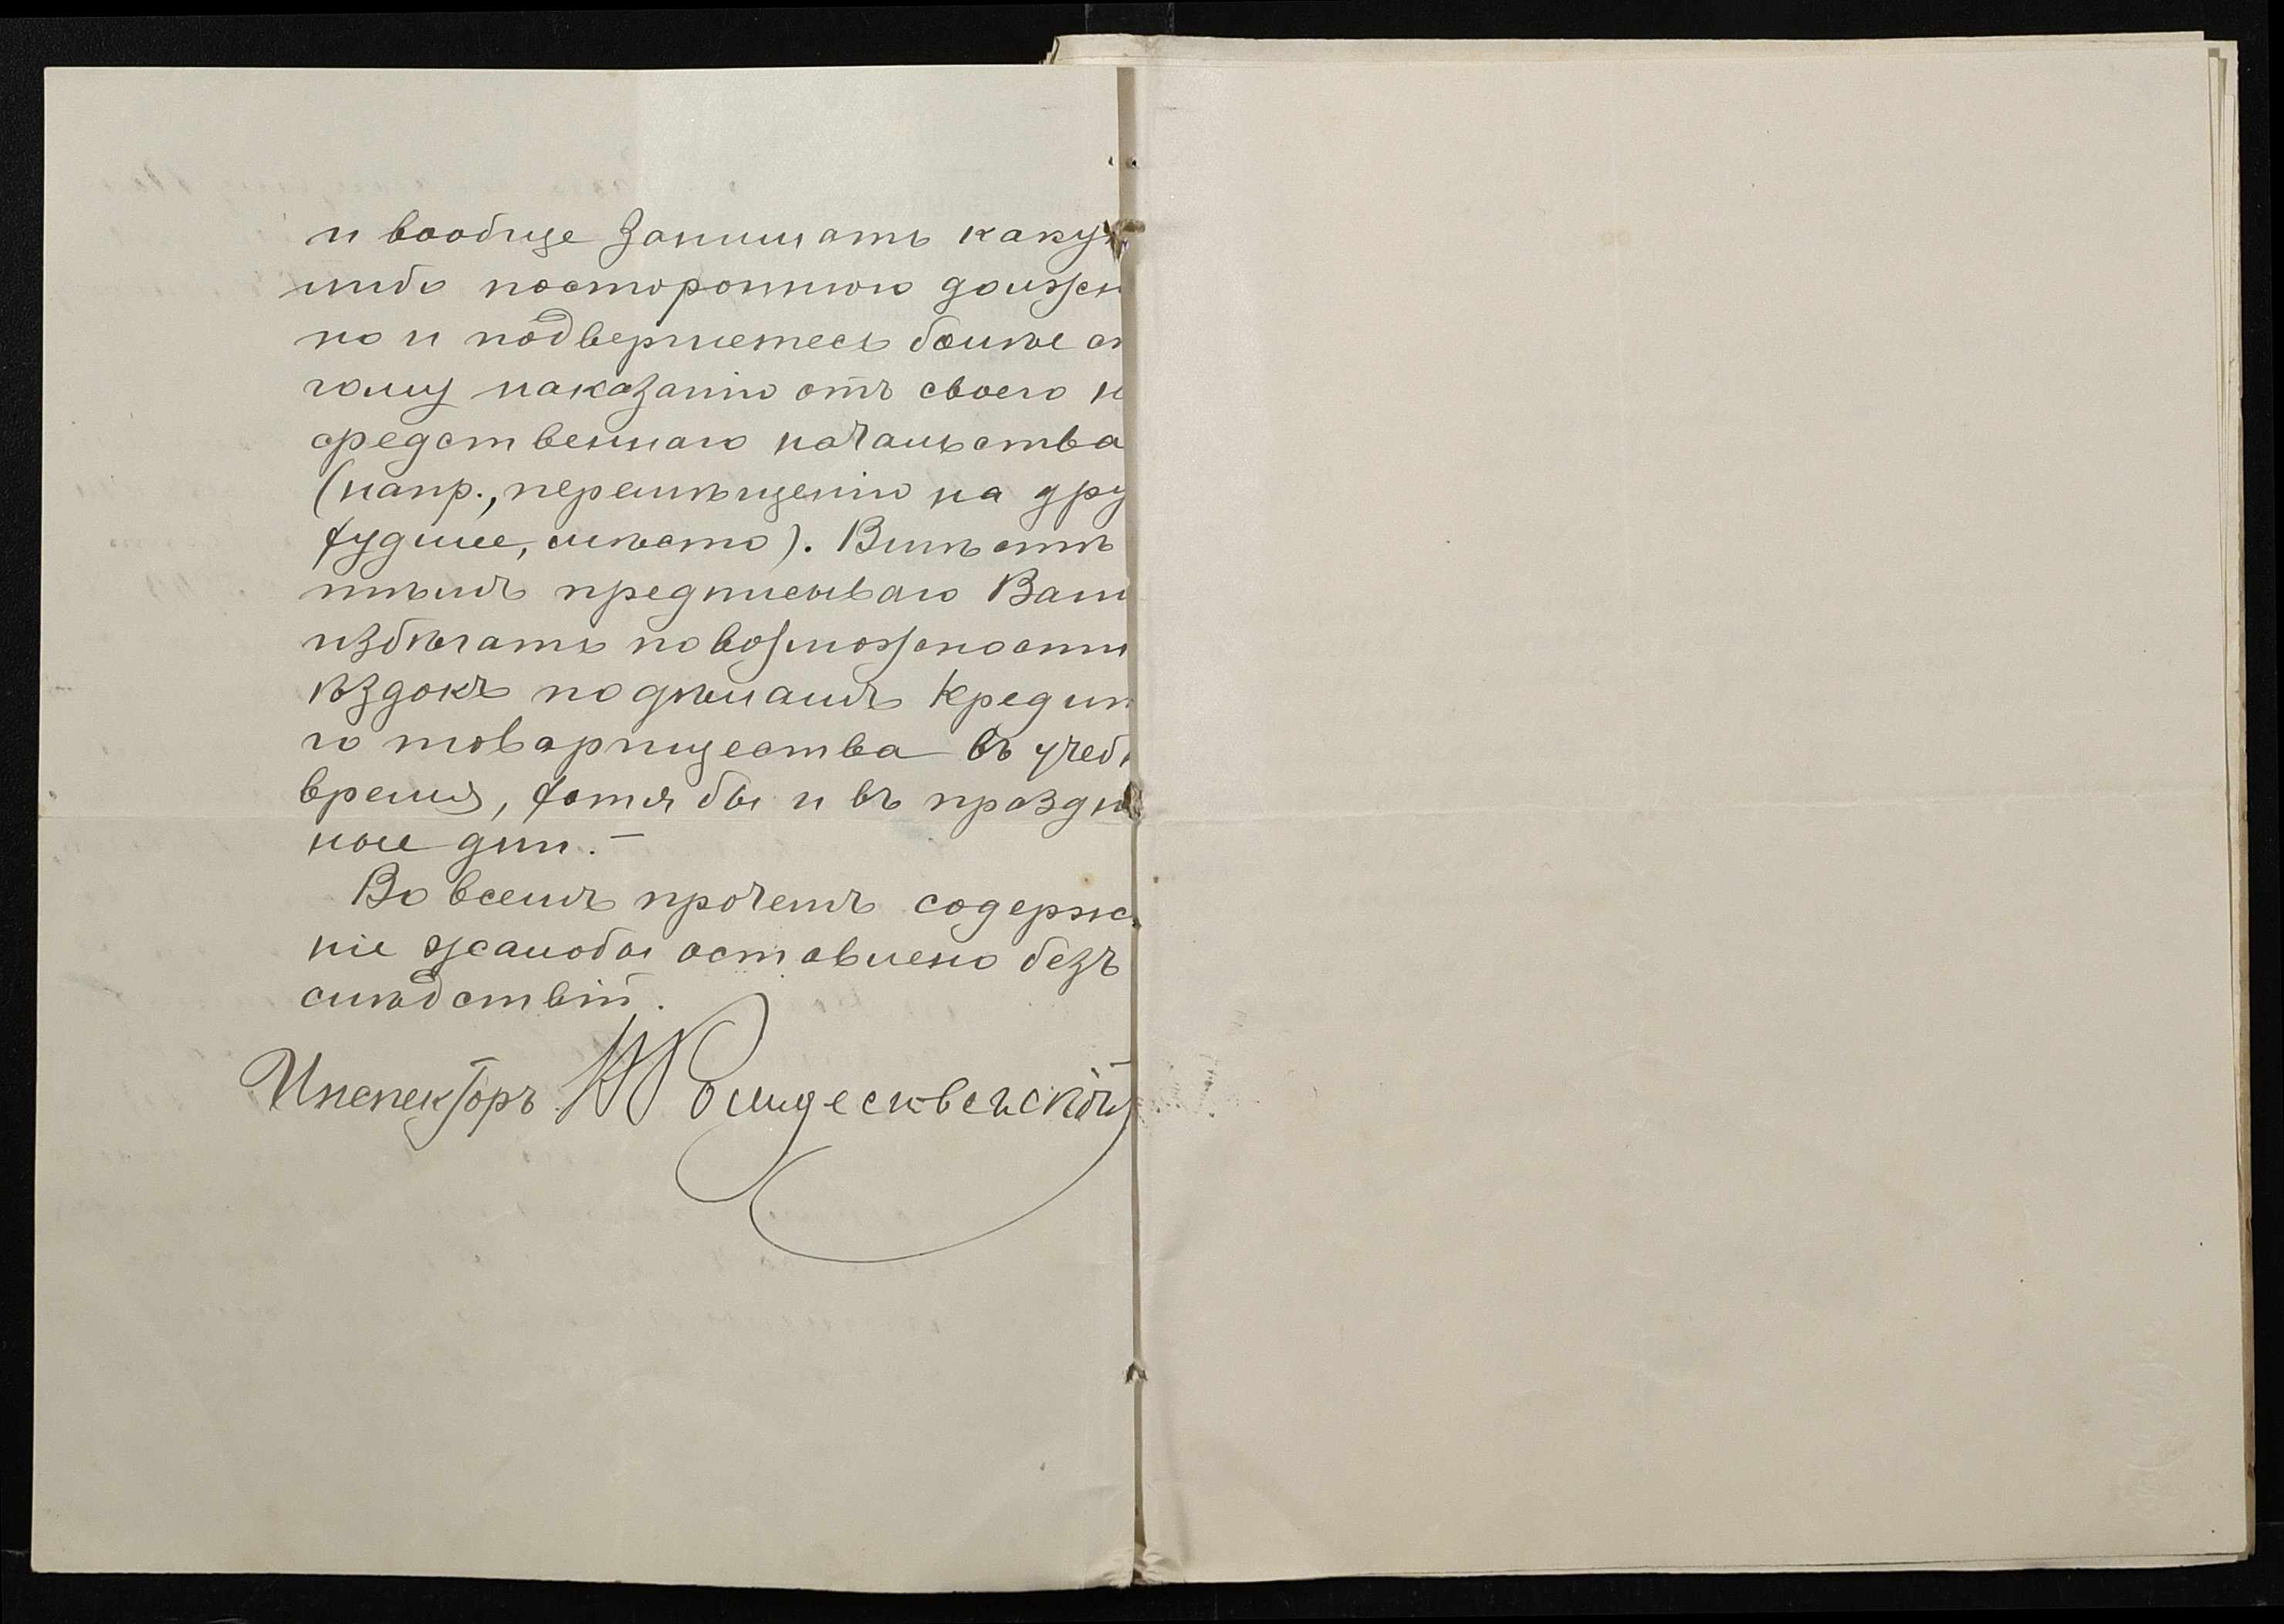 и вообще занимать какую
либо постороннюю должн
но и подвергнетесь болѣе ст
гому наказанію отъ своего н
средственнаго начальства
(напр., перемѣщенію на дру
худшее, мѣсто). Вмѣстѣ
тѣмъ предписываю Вам
избѣгать по возможности
ѣздокъ по дѣламъ Кредит
го товарищества въ учебн
время, хотя бы и въ праздн
ные дни.—
Во всемъ прочемъ содержа
ніе жалобы оставлено безъ
слѣдствій.
Инспекторъ Рождественскій